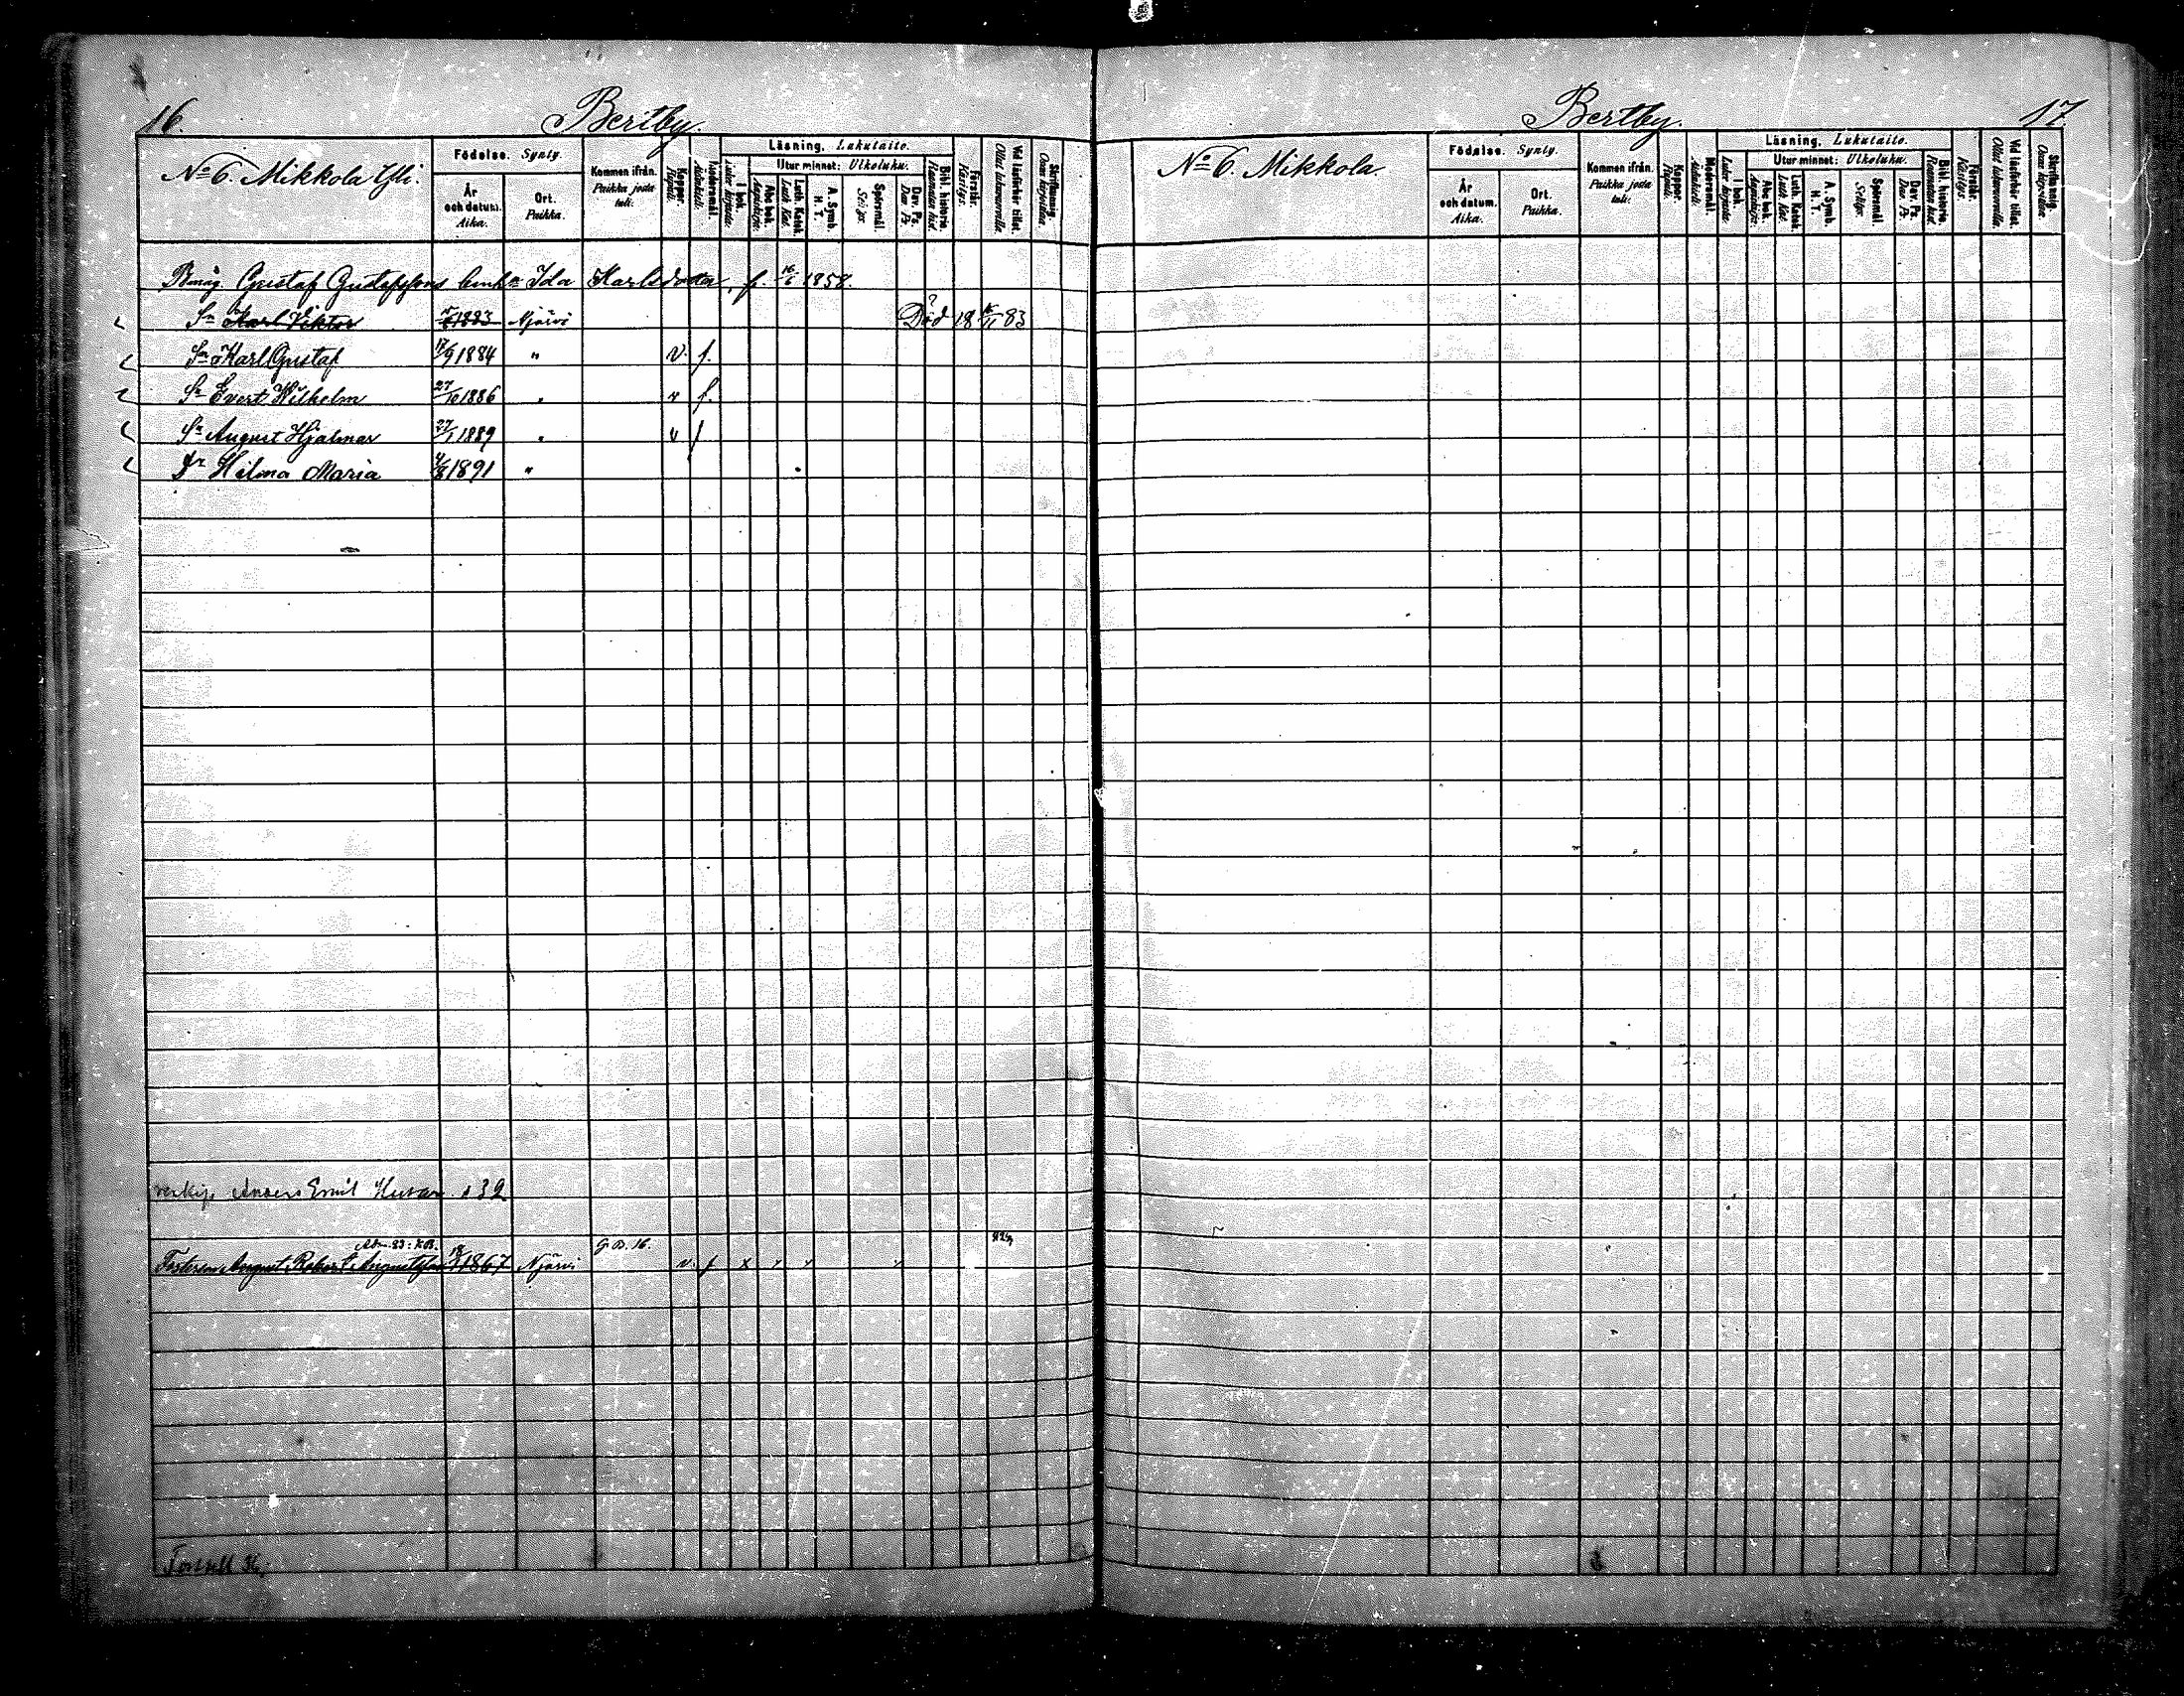 16.
Bertby.
No 6. Mikkola Yli.
Födelse. Synty.
År och datum. Aika.
Ort. Paikka.
Kommen ifrån. Paikka josta tuli.
Koppor. Rupuli.
Modersmål. Äidinkieli.
Läsning. Lukutaito.
I bok. Luku kirjasta.
Utur minnet: Ulkoluku.
Abc bok. Aapiskirja.
Luth. Katek. Luth. Kat.
A. Symb. H. T.
Spörsmål. Selitys.
Dav. Ps. Dav. Ps.
Bibl. historie. Raamatun hist.
Förstår. Käsitys.
Vid läsförhör tillst. Ollut lukuluvuilla.
Skriftkunnig. Osaa kirjoittaa.
Bmåg. Gustaf Gustafssons enka Ida Karlsdotter, f. 16/6 1858.
Sn Karl Viktor 1883 Njärvi Död 18 83
Sn Karl Gustaf 17/9 1884 " v. f.
Sn Evert Wilhelm 27/10 1886 " v f.
Sn August Hjalmar 27/1 1889 " v f
Dr Hilma Maria 4/8 1891 "
Anders Emil s 32
Adm. 83: K.B. G.B. 16.
Fosterson August Robert Augustsson 1867 Njärvi v. f x
Bertby.
17
No 6. Mikkola.
Födelse. Synty.
År och datum. Aika.
Ort. Paikka.
Kommen ifrån. Paikka josta tuli.
Koppor. Rupuli.
Modersmål. Äidinkieli.
Läsning. Lukutaito.
I bok. Luku kirjasta.
Utur minnet: Ulkoluku.
Abc bok. Aapiskirja.
Luth. Katek. Luth. Kat.
A. Symb. H. T.
Spörsmål. Selitys.
Dav. Ps. Dav. Ps.
Bibl. historie. Raamatun hist.
Förstår. Käsitys.
Vid läsförhör tillst.
Skriftkunnig. Osaa kirjoittaa.